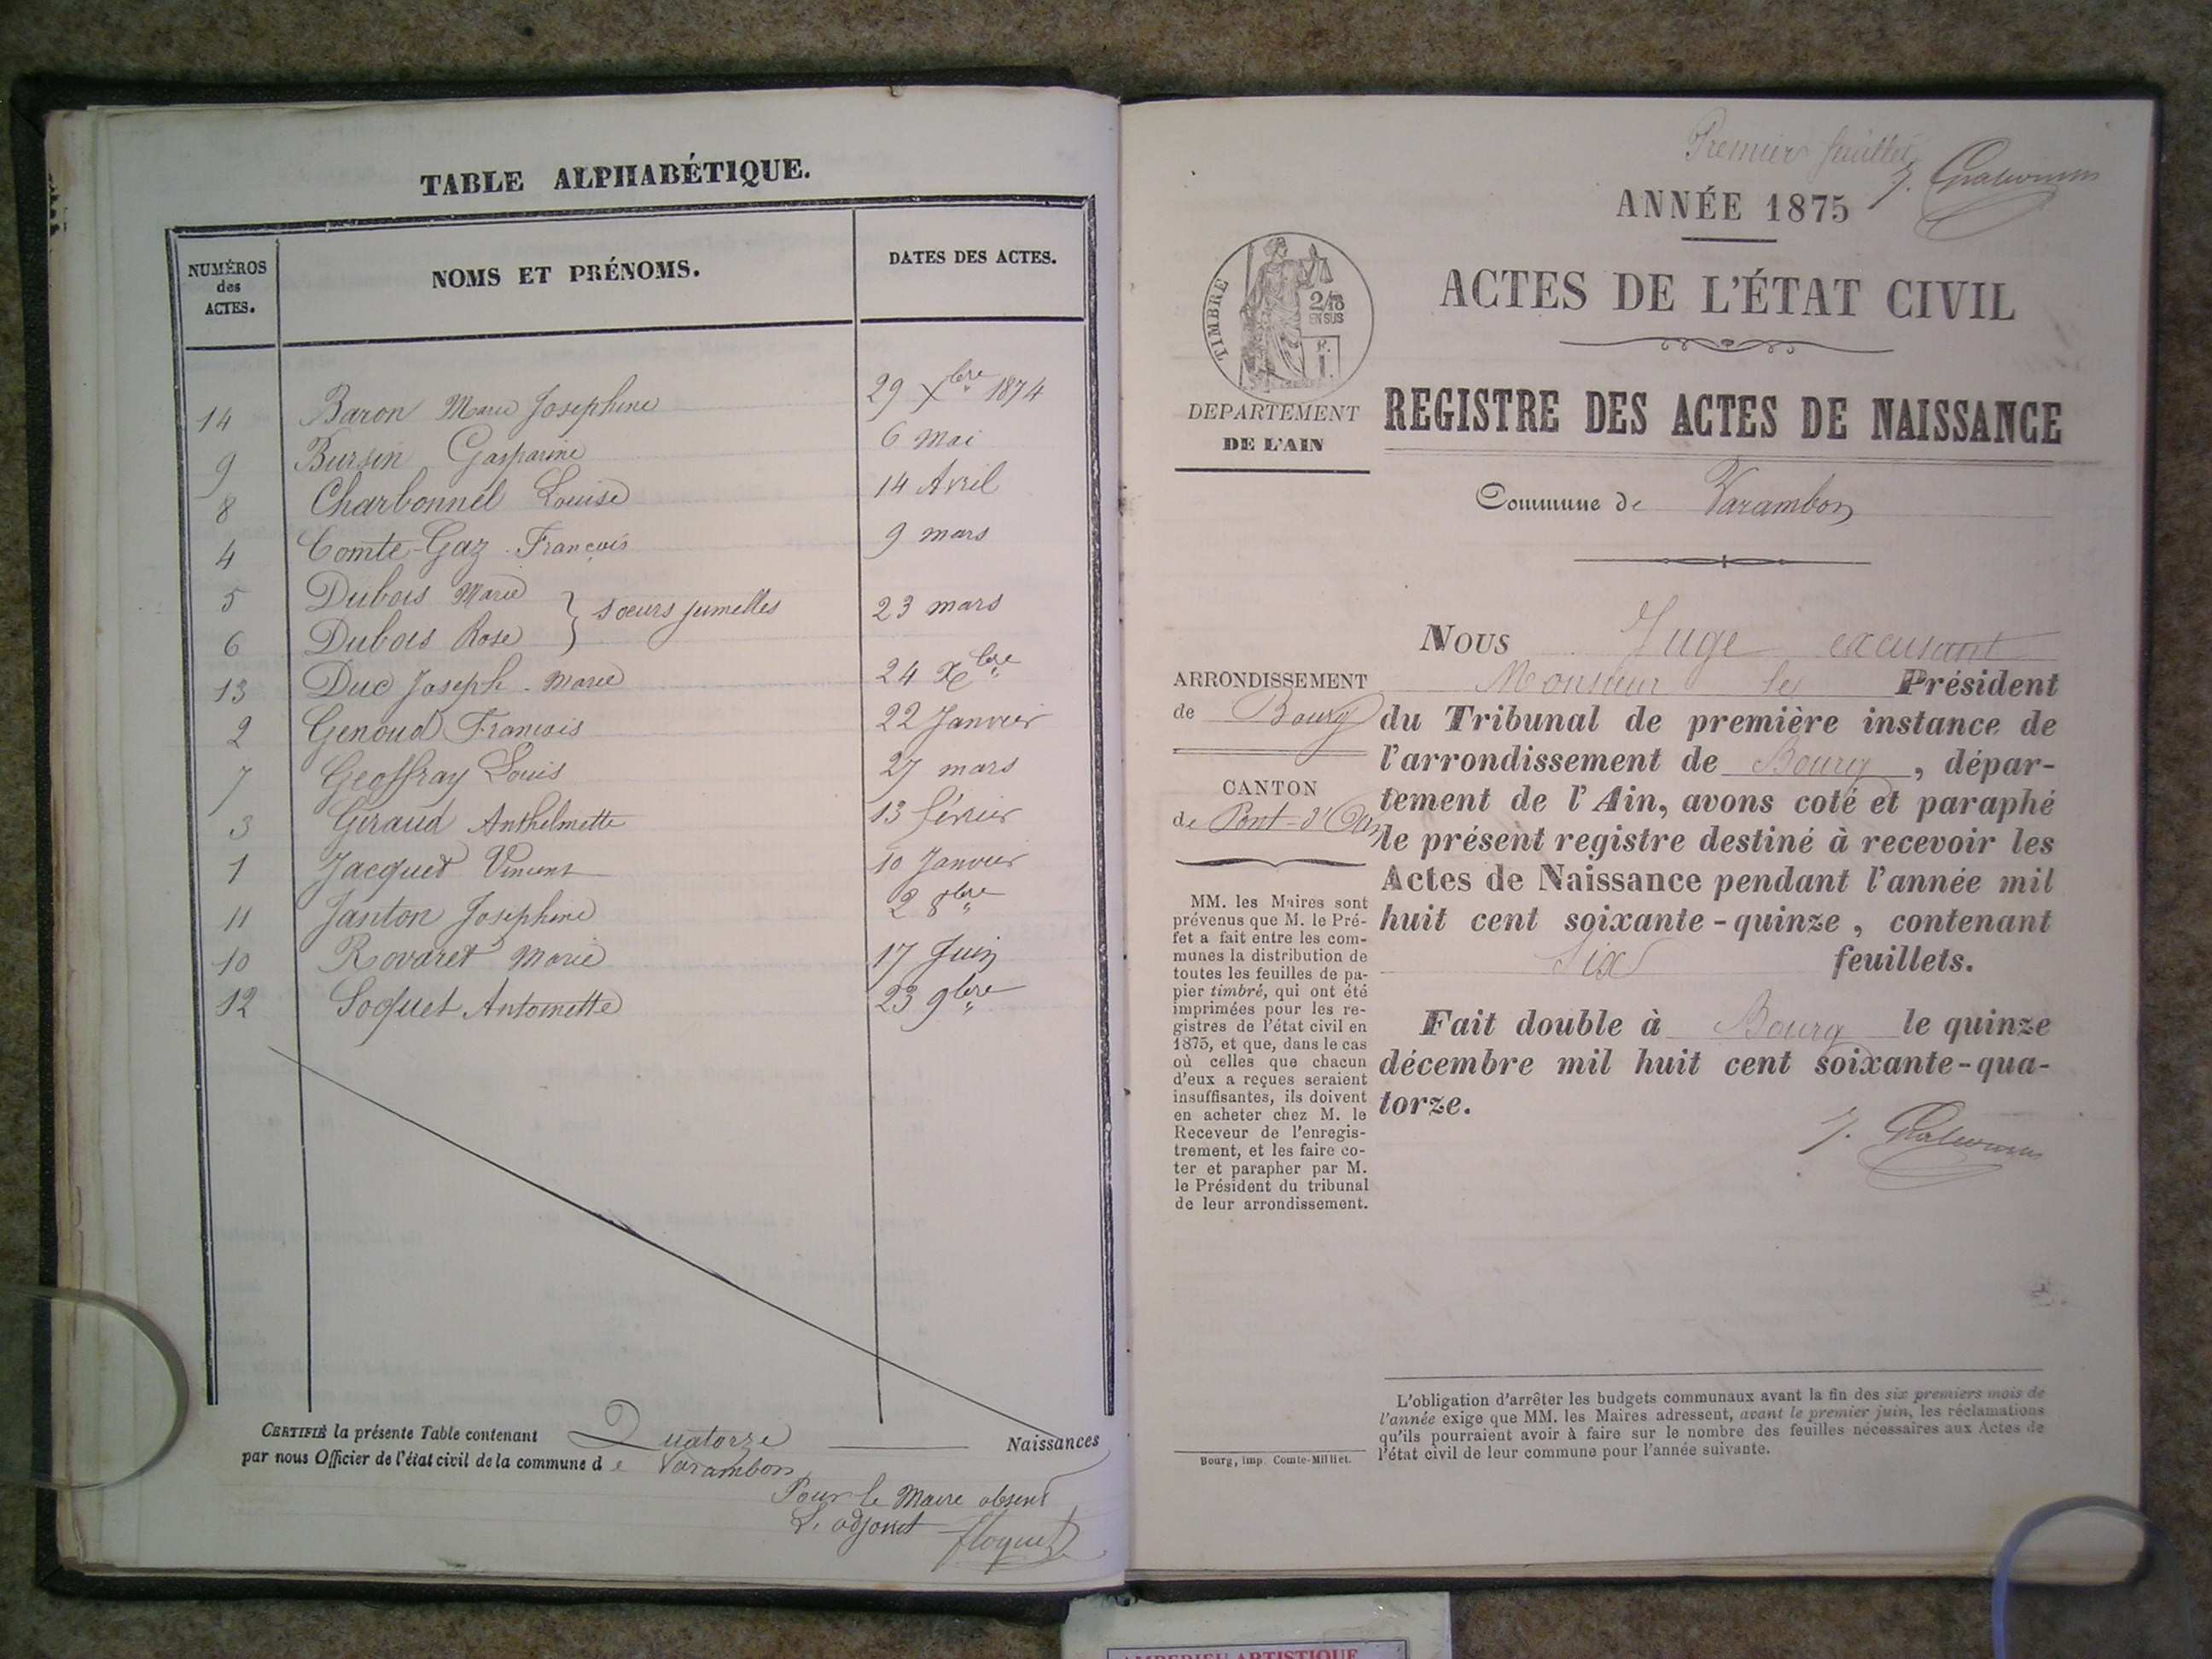 TABLE ALPHABÉTIQUE.
NUMÉROS des ACTES.
NOMS ET PRÉNOMS.
DATES DES ACTES.
14 Baron Marie Josephine 29 Xbre 1874
9 Bursin Gasparine 6 Mai
8 Charbonnel Louise 14 Avril
4 Comte-Gaz François 9 mars
5 Dubois Marie
} sœurs jumelles 23 mars
6 Dubois Rose
13 Duc Joseph-Marie 24 Xbre
2 Genoud François 22 Janvier
7 Geoffray Louis 27 mars
3 Geraud Anthelmette 13 février
1 Jacquet Vincent 10 Janvier
11 Janton Josephine 2 8bre
10 Rovaret Marie 17 Juin
12 Soquet Antoinette 23 9bre
CERTIFIÉ la présente Table contenant Quatorze Naissances
par nous Officier de l'état civil de la commune de Varambon
Pour le Maire absent
L. adjoint Floquet
Premier feuillet
ANNÉE 1875
ACTES DE L'ÉTAT CIVIL
TIMBRE
2/10
EN SUS
F.
1.
DEPARTEMENT
DE L'AIN
REGISTRE DES ACTES DE NAISSANCE
Commune de Varambon
ARRONDISSEMENT
de Bourg
CANTON
de Pont-d'Ain
MM. les Maires sont
prévenus que M. le Pré-
fet a fait entre les com-
munes la distribution de
toutes les feuilles de pa-
pier timbré, qui ont été
imprimées pour les re-
gistres de l'état civil en
1875, et que, dans le cas
où celles que chacun
d'eux a reçues seraient
insuffisantes, ils doivent
en acheter chez M. le
Receveur de l'enregis-
trement, et les faire co-
ter et parapher par M.
le Président du tribunal
de leur arrondissement.
NOUS Juge excusant
Monsieur le Président
du Tribunal de première instance de
l'arrondissement de Bourg, dépar-
tement de l'Ain, avons coté et paraphé
le présent registre destiné à recevoir les
Actes de Naissance pendant l'année mil
huit cent soixante-quinze, contenant
six feuillets.
Fait double à Bourg le quinze
décembre mil huit cent soixante-qua-
torze.
L'obligation d'arrêter les budgets communaux avant la fin des six premiers mois de
l'année exige que MM. les Maires adressent, avant le premier juin, les réclamations
qu'ils pourraient avoir à faire sur le nombre des feuilles nécessaires aux Actes de
l'état civil de leur commune pour l'année suivante.
Bourg, imp. Comte-Milliet.
AMBERIEU ARTISTIQUE